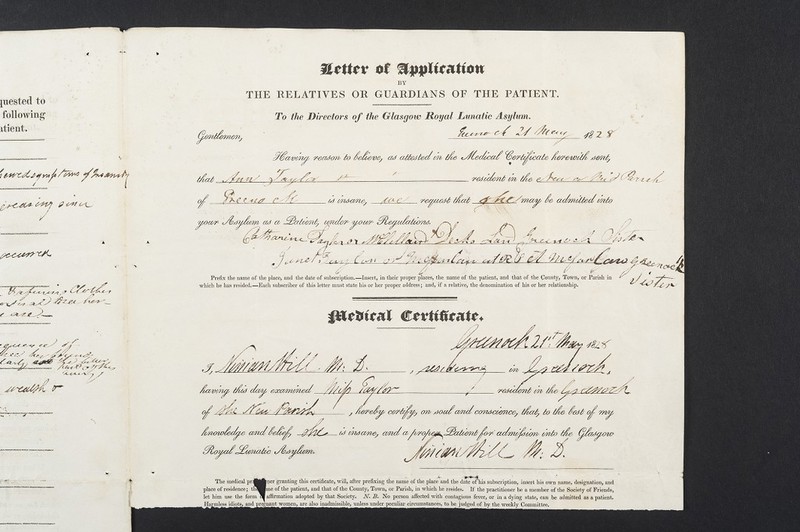 quested to
following
atient.
Letter of Application
BY
THE RELATIVES OR GUARDIANS OF THE PATIENT.
To the Directors of the Glasgow Royal Lunatic Asylum.
Gentlemen, Greenock 21 May 1828
Having reason to believe, as attested in the Medical Certificate herewith sent,
that Ann Taylor resident in the New or Mid Parish
of Greenock is insane, we request that she may be admitted into
your Asylum as a Patient, under your Regulations.
Catharine Taylor or McLelland Docks Land Greenock Sister
Janet Taylor or Greenock
Sister
Prefix the name of the place, and the date of subscription.—Insert, in their proper places, the name of the patient, and that of the County, Town, or Parish in
which he has resided.—Each subscriber of this letter must state his or her proper address; and, if a relative, the denomination of his or her relationship.
Medical Certificate.
Greenock 21st May 1828
I, Ninian Hill M. D., residing in Greenock,
having this day examined Miss Taylor resident in the Greenock
of the New Parish, hereby certify, on soul and conscience, that, to the best of my
knowledge and belief, she is insane, and a proper Patient for admission into the Glasgow
Royal Lunatic Asylum. Ninian Hill M. D.
The medical granting this certificate, will, after prefixing the name of the place and the date of his subscription, insert his own name, designation, and
place of residence; the name of the patient, and that of the County, Town, or Parish, in which he resides. If the practitioner be a member of the Society of Friends,
let him use the form of affirmation adopted by that Society. N. B. No person affected with contagious fever, or in a dying state, can be admitted as a patient.
Harmless idiots, and pregnant women, are also inadmissible, unless under peculiar circumstances, to be judged of by the weekly Committee.